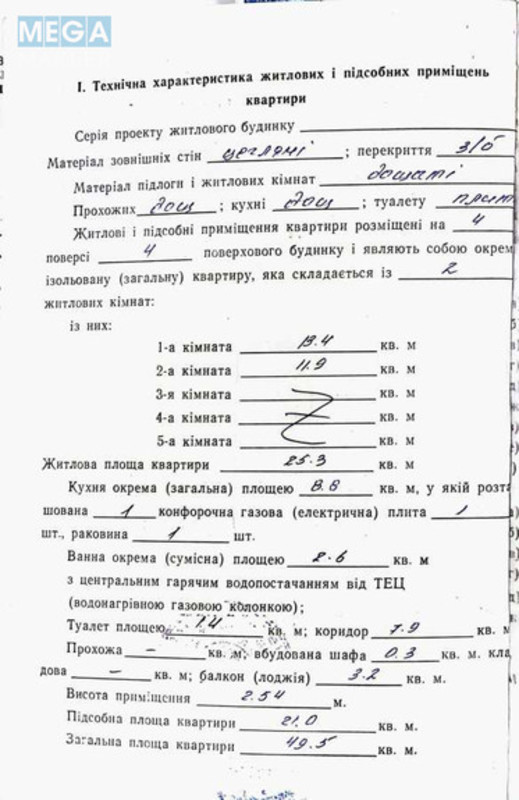 MEGA
I. Технічна характеристика житлових і підсобних приміщень
квартири
Серія проекту житлового будинку
Матеріал зовнішніх стін цегляні ; перекриття з/б
Матеріал підлоги і житлових кімнат дощаті
Прохожих дощ ; кухні дощ ; туалету плит
Житлові і підсобні приміщення квартири розміщені на 4
поверсі 4 поверхового будинку і являють собою окрем
ізольовану (загальну) квартиру, яка складається із 2
житлових кімнат:
із них:
1-а кімната 13.4 кв. м
2-а кімната 11.9 кв. м
3-я кімната кв. м
4-а кімната кв. м
5-а кімната кв. м
Житлова площа квартири 25.3 кв. м
Кухня окрема (загальна) площею 8.8 кв. м, у якій розта
шована 1 конфорочна газова (електрична) плита 1
шт., раковина 1 шт.
Ванна окрема (сумісна) площею 2.6 кв. м
з центральним гарячим водопостачанням від ТЕЦ
(водонагрівною газовою колонкою);
Туалет площею 1.4 кв. м; коридор 7.9 кв. м
Прохожа – кв. м; вбудована шафа 0.3 кв. м. кла
дова – кв. м; балкон (лоджія) 3.2 кв. м.
Висота приміщення 2.54 м.
Підсобна площа квартири 21.0 кв. м.
Загальна площа квартири 49.5 кв. м.